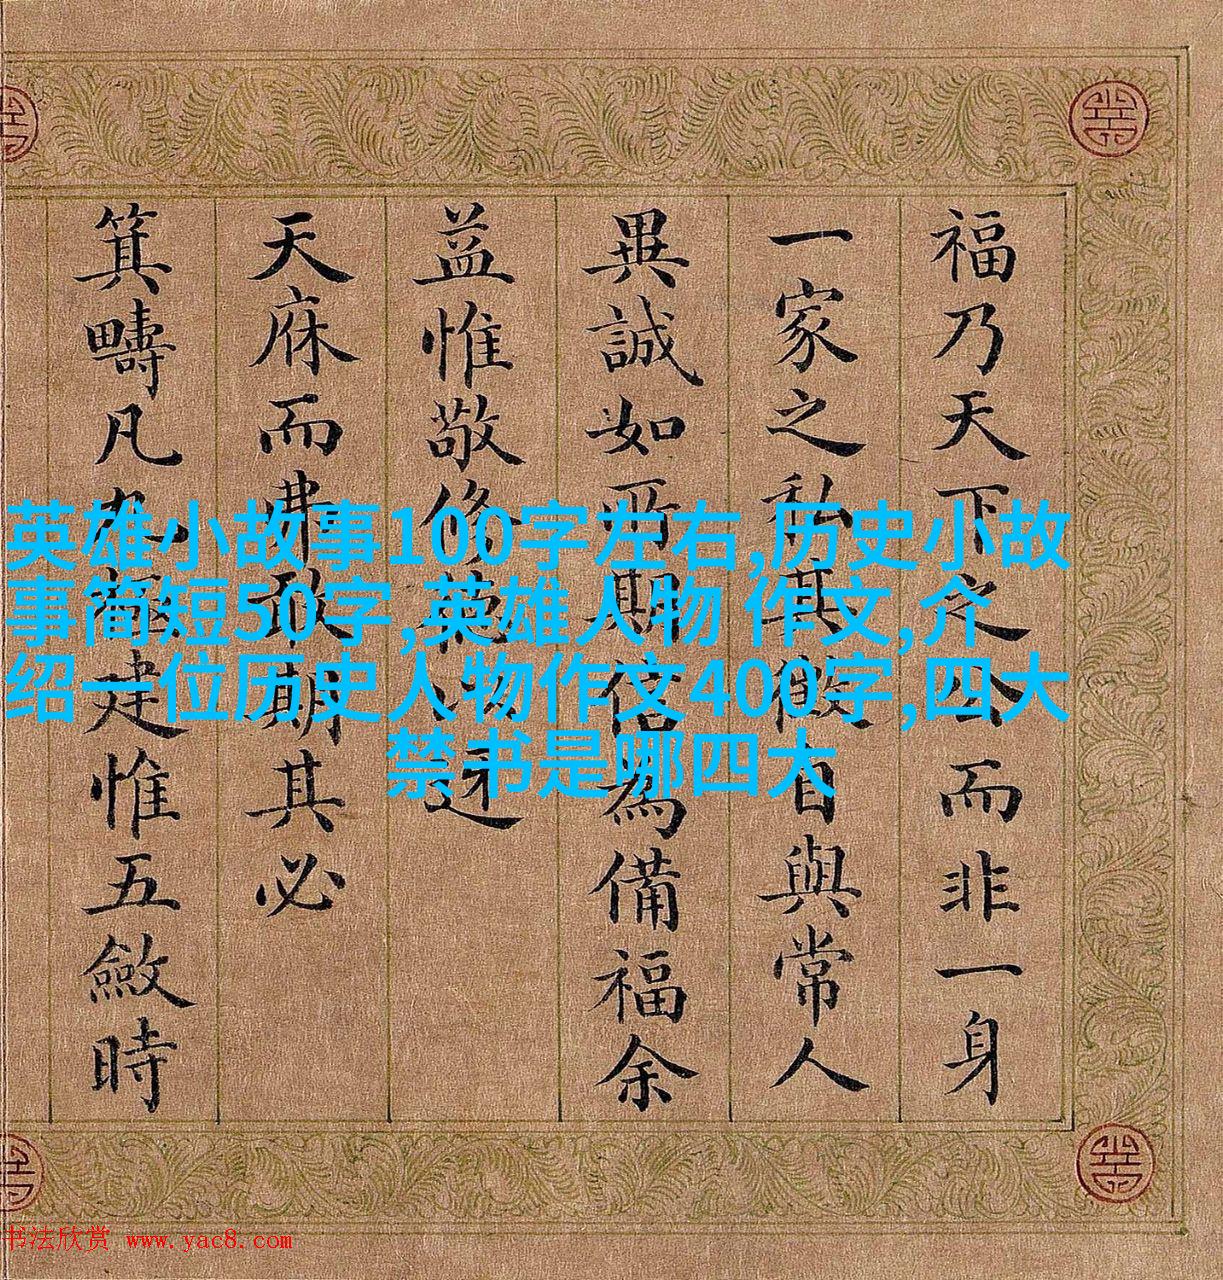 福乃天下之而非一身
一家之私其自與常人
異誠如所期信為備福余
益惟敬修以迓
天庥而弗敢期其必
箕疇凡九極建惟五斂時
英雄小故事100字左右,历史小故
事简短50字,英雄人物 作文,介
绍一位历史人物作文400字,四大
禁书是哪四大
书法欣赏 www.yac8.com